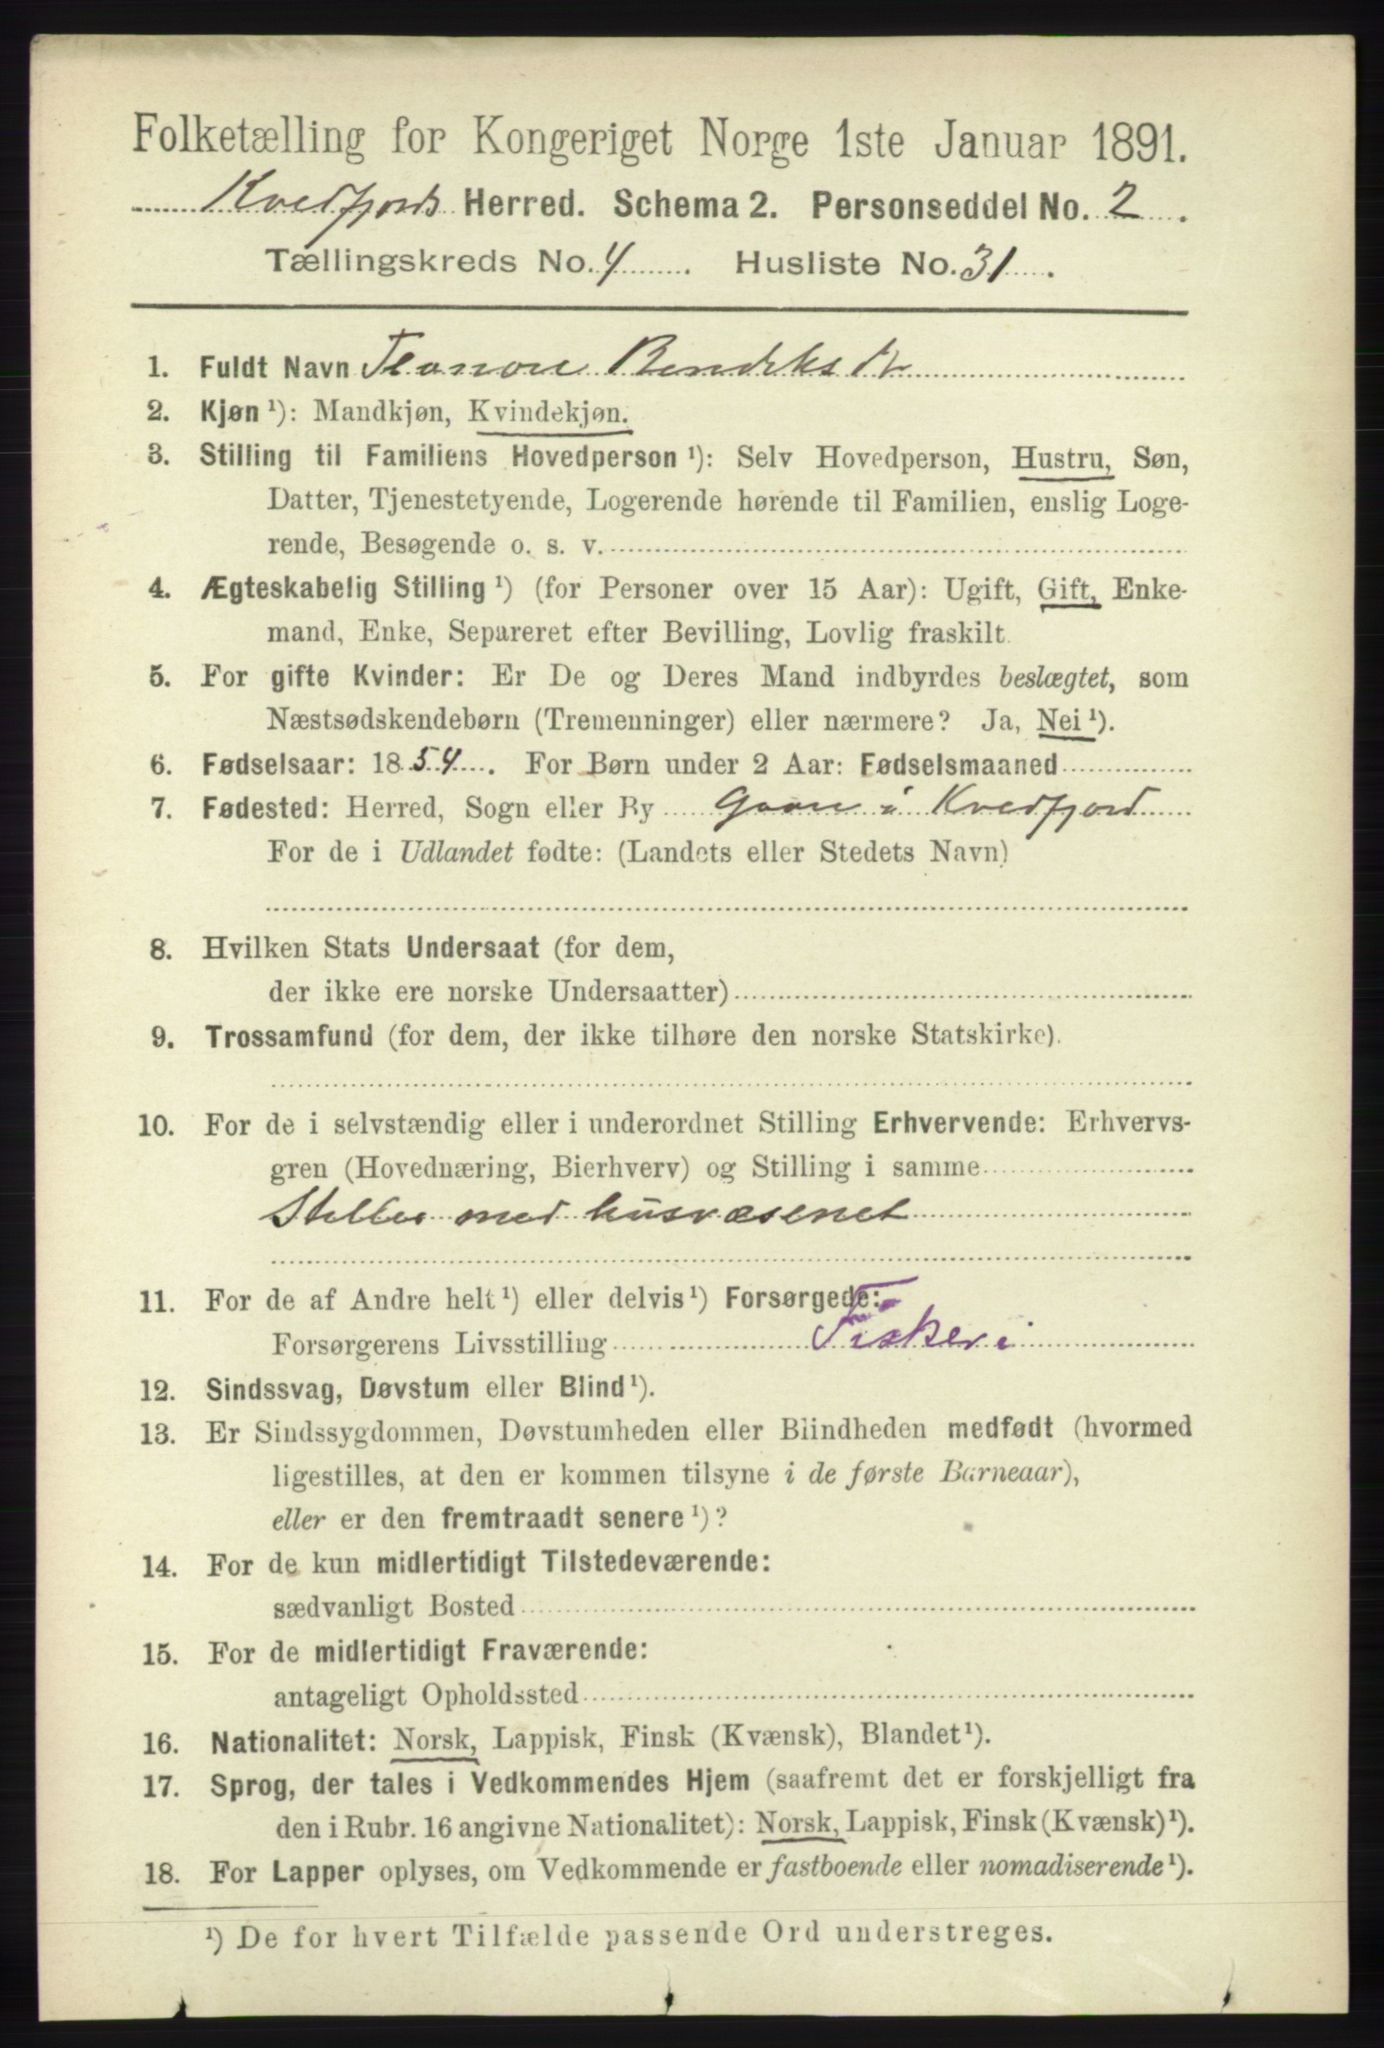 Folketælling for Kongeriget Norge 1ste Januar 1891.
Kvedfjords Herred. Schema 2. Personseddel No. 2.
Tællingskreds No. 4. Husliste No. 31.
1. Fuldt Navn Eleonore Bendiks Dr
2. Kjøn ¹): Mandkjøn, Kvindekjøn.
3. Stilling til Familiens Hovedperson ¹): Selv Hovedperson, Hustru, Søn,
Datter, Tjenestetyende, Logerende hørende til Familien, enslig Loge-
rende, Besøgende o. s. v.
4. Ægteskabelig Stilling ¹) (for Personer over 15 Aar): Ugift, Gift, Enke-
mand, Enke, Separeret efter Bevilling, Lovlig fraskilt.
5. For gifte Kvinder: Er De og Deres Mand indbyrdes beslægtet, som
Næstsødskendebørn (Tremenninger) eller nærmere? Ja, Nei ¹).
6. Fødselsaar: 1854. For Børn under 2 Aar: Fødselsmaaned
7. Fødested: Herred, Sogn eller By i Kvedfjord
For de i Udlandet fødte: (Landets eller Stedets Navn)
8. Hvilken Stats Undersaat (for dem,
der ikke ere norske Undersaatter)
9. Trossamfund (for dem, der ikke tilhøre den norske Statskirke).
10. For de i selvstændig eller i underordnet Stilling Erhvervende: Erhvervs-
gren (Hovednæring, Bierhverv) og Stilling i samme
Steller med husvæsenet
11. For de af Andre helt ¹) eller delvis ¹) Forsørgede:
Forsørgerens Livsstilling Fiskeri
12. Sindssvag, Døvstum eller Blind ¹).
13. Er Sindssygdommen, Døvstumheden eller Blindheden medfødt (hvormed
ligestilles, at den er kommen tilsyne i de første Barneaar),
eller er den fremtraadt senere ¹)?
14. For de kun midlertidigt Tilstedeværende:
sædvanligt Bosted
15. For de midlertidigt Fraværende:
antageligt Opholdssted
16. Nationalitet: Norsk, Lappisk, Finsk (Kvænsk), Blandet ¹).
17. Sprog, der tales i Vedkommendes Hjem (saafremt det er forskjelligt fra
den i Rubr. 16 angivne Nationalitet): Norsk, Lappisk, Finsk (Kvænsk) ¹).
18. For Lapper oplyses, om Vedkommende er fastboende eller nomadiserende ¹).
¹) De for hvert Tilfælde passende Ord understreges.